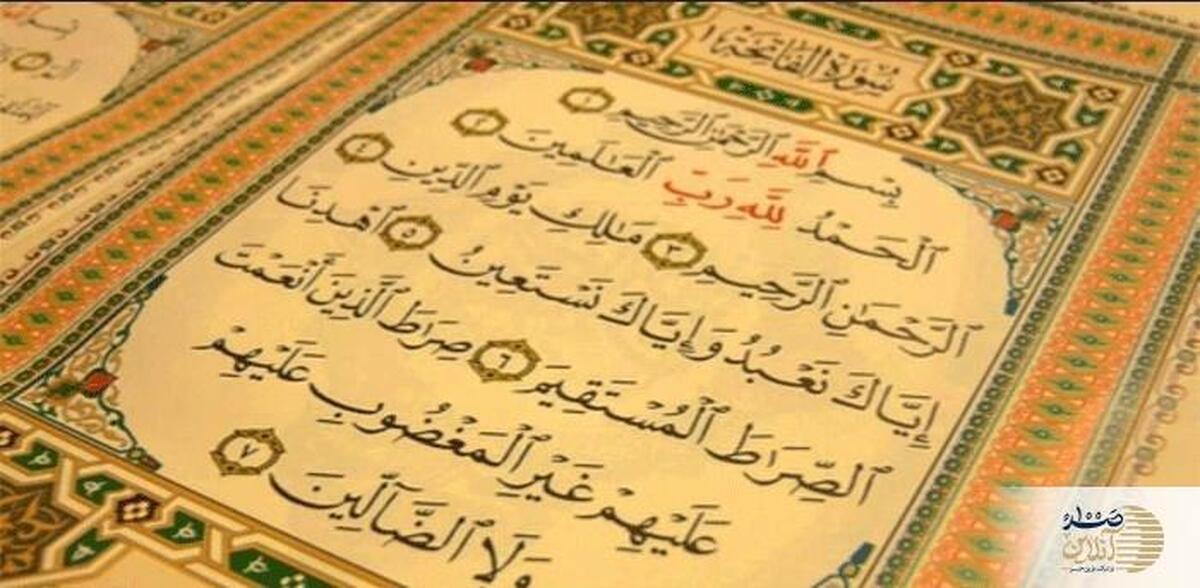 سُورَةُ الفَاتِحَةِ ١
بِسْمِ ٱللَّهِ ٱلرَّحْمَٰنِ ٱلرَّحِيمِ ١
ٱلْحَمْدُ لِلَّهِ رَبِّ ٱلْعَالَمِينَ ٢
ٱلرَّحْمَٰنِ ٱلرَّحِيمِ ٣ مَالِكِ يَوْمِ ٱلدِّينِ ٤
إِيَّاكَ نَعْبُدُ وَإِيَّاكَ نَسْتَعِينُ ٥ ٱهْدِنَا
ٱلصِّرَاطَ ٱلْمُسْتَقِيمَ ٦ صِرَاطَ ٱلَّذِينَ أَنْعَمْتَ
عَلَيْهِمْ غَيْرِ ٱلْمَغْضُوبِ عَلَيْهِمْ
وَلَا ٱلضَّآلِّينَ ٧
صدای
آنلاین